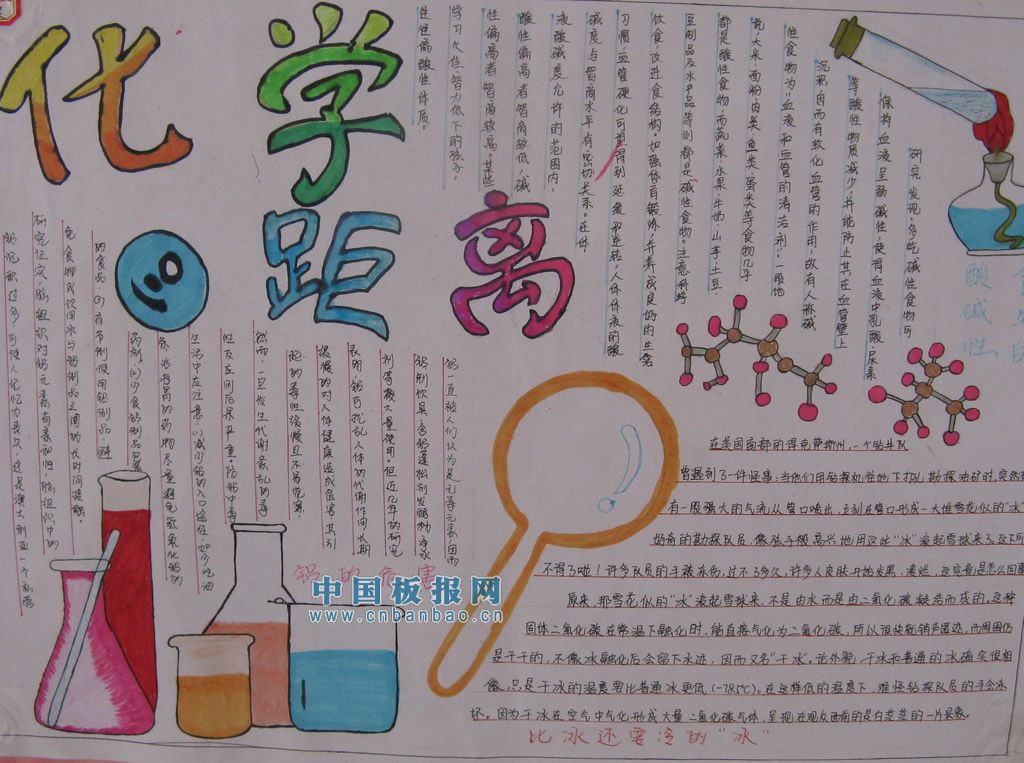 化学
距离
研究发现，多吃碱性食物可
保持血液呈弱碱性，使得血液中乳酸、尿素
等酸性物质减少，并能防止其在血管壁上
沉积，因而有软化血管的作用，故有人称碱
性食物为"血液和血管的清洁剂"。一般地
说，大米、面粉、肉类、鱼类、蛋类等食物几乎
都是酸性食物，而蔬菜、水果、牛奶、山芋、土豆、
豆制品及水产品等则都是碱性食物。
饮食，改进食结构，加强体育锻炼，并养成良好的生活
习惯，血管硬化可望得到延缓和逆转。人体体液的酸
碱度与智商水平有密切关系。在体
液酸碱度允许的范围内，
酸性偏高者智商较低，碱
性偏高者智商较高。某些
学习欠佳、智力低下的孩子，
往往偏酸性体质。
食
酸碱性
铝一直被人们认为是无毒元素，因而
铝制饮具、含铝蓬松剂发酵粉、净水
剂等被大量使用。但近几年的研究
表明，铝可扰乱人体的代谢作用，长期
缓慢的对人体健康造成危害，其引
起的毒性缓慢且不易觉察，
然而，一旦发生代谢紊乱的毒
性反应，则后果严重。防铝中毒，
生活中应注意：(1)减少铝的入口途径，如少吃油
的食品。(3)有节制使用铝制品，避
免食物或饮用水与铝制品之间的长时间接触。
研究证实，脑组织对铝元素有亲和性，脑组织中的
铝沉积过多，可使人记忆力丧失，这是澳大利亚一个私营
铝的危害
中国板报网
www.cnbanbao.cn
在美国南部的得克萨斯州，一个钻井队
曾遇到了一件怪事：当他们用钻探机往地下打孔勘探油矿时，突然
有一股强大的气流从管口喷出，立刻在管口形成一大堆雪花似的"冰
好奇的勘探队员，像孩子般高兴地用这些"冰"滚起雪球来了。这下
不得了啦！许多队员的手被冻伤，过不了多久，许多人皮肤开始发黑、溃烂，这究竟是怎么回
原来，那雪花似的"冰"滚起雪球来，不是由水而是由二氧化碳凝结而成的，这种
固体二氧化碳在常温下融化时，能直接气化为二氧化碳，所以很快就销声匿迹，而周围仍
是干干的，不像冰融化后会留下水迹，因而又名"干冰"。论外貌，干冰和普通的冰确实很相
像，只是干冰的温度要比普通冰更低(-78.5℃)。在这样低的温度下，难怪钻探队员的手会冻
坏。因为干冰在空气中气化形成大量二氧化碳气体，呈现在观众面前的是白茫茫的一片景象。
比冰还要冷的"冰"